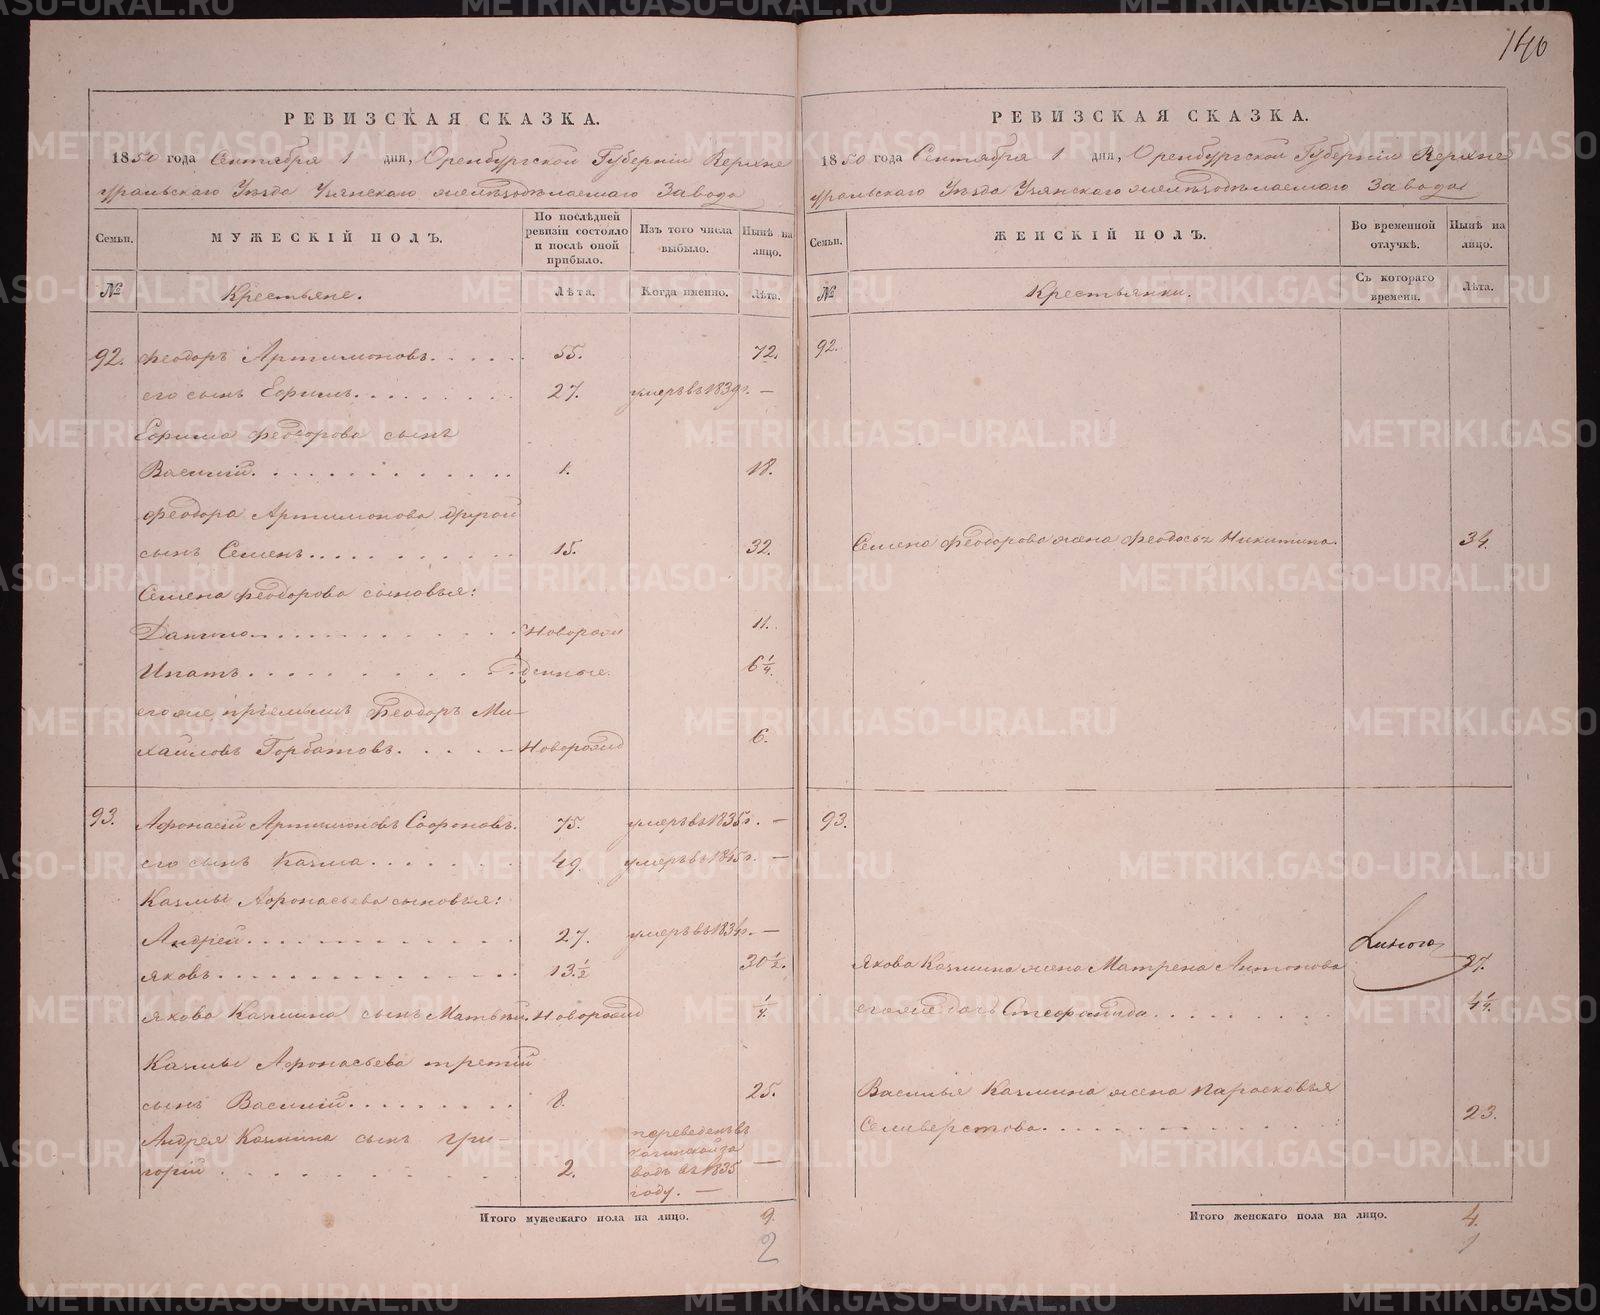 146
РЕВИЗСКАЯ СКАЗКА.
1850 года Сентября 1 дня, Оренбургской Губернiи Верхне
уральскаго Уѣзда Узянскаго желѣзодѣлаемаго Завода
Семьи.
МУЖЕСКІЙ ПОЛЪ.
По послѣдней ревизіи состояло и послѣ оной прибыло.
Изъ того числа выбыло.
Нынѣ на лицо.
№
Крестьяне.
Лѣта.
Когда именно.
Лѣта.
92. Феодоръ Артимоновъ. 55. 72.
его сынъ Ефимъ. 27. умеръ въ 1839 г. —
Ефима Феодорова сынъ
Василій. 1. 18.
Феодора Артимонова другой
сынъ Семенъ. 15. 32.
Семена Феодорова сыновья:
Данило. Новорож 11.
Ипатъ. денные. 6 1/4.
его же, пріемышъ Феодоръ Ми-
хайловъ Горбатовъ. Новорожд 6.
93. Афонасій Артимоновъ Софроновъ. 75. умеръ въ 1835 г. —
его сынъ Казма. 49. умеръ въ 1845 г. —
Казмы Афонасьева сыновья:
Андрей. 27. умеръ въ 1834 г. —
Яковъ. 13 1/2 30 1/2.
Якова Казмина сынъ Матвѣй. Новорожд 1/4.
Казмы Афонасьева третій
сынъ Василій. 8. 25.
Андрея Казмина сынъ Гри-
горій. 2. переведенъ въ
за
водъ въ 1835 —
году. —
Итого мужескаго пола на лицо. 9.
2
РЕВИЗСКАЯ СКАЗКА.
1850 года Сентября 1 дня, Оренбургской Губернiи Верхне
уральскаго Уѣзда Узянскаго желѣзодѣлаемаго Завода
Семьи.
ЖЕНСКІЙ ПОЛЪ.
Во временной отлучкѣ.
Нынѣ на лицо.
№
Крестьянки.
Съ котораго времени.
Лѣта.
92.
Семена Феодорова жена Феодосья Никитина. 34.
93.
Якова Казмина жена Матрена Антонова 27.
его же дочь Стефанида. 4 1/4.
Василья Казмина жена Парасковья
Селиверстова. 23.
Итого женскаго пола на лицо. 4.
METRIKI.GASO-URAL.RU